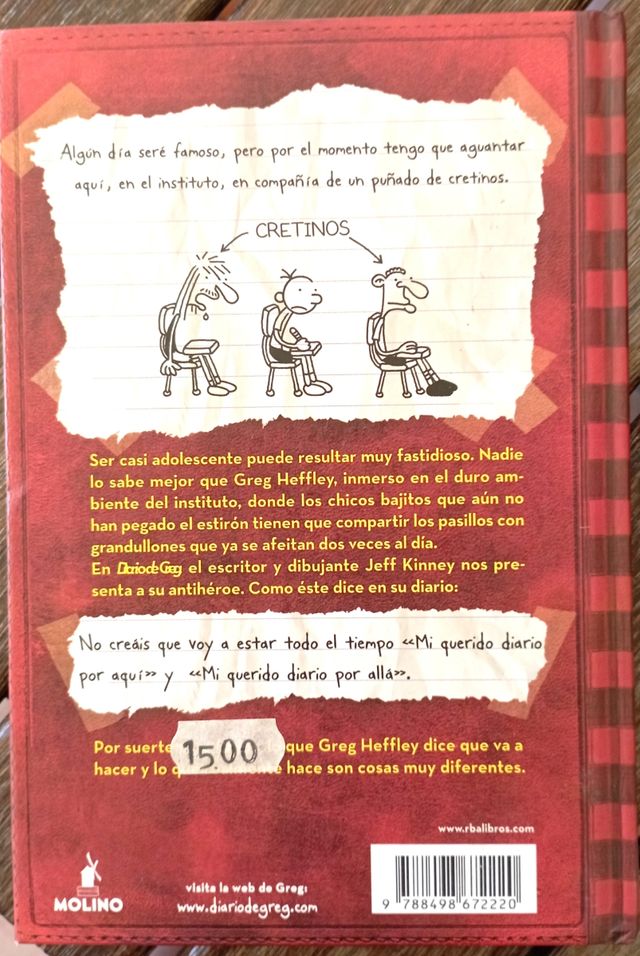 Algún día seré famoso, pero por el momento tengo que aguantar
aquí, en el instituto, en compañía de un puñado de cretinos.
CRETINOS
Ser casi adolescente puede resultar muy fastidioso. Nadie
lo sabe mejor que Greg Heffley, inmerso en el duro am-
biente del instituto, donde los chicos bajitos que aún no
han pegado el estirón tienen que compartir los pasillos con
grandullones que ya se afeitan dos veces al día.
En Diario de Greg el escritor y dibujante Jeff Kinney nos pre-
senta a su antihéroe. Como éste dice en su diario:
No creáis que voy a estar todo el tiempo «Mi querido diario
por aquí» y «Mi querido diario por allá».
Por suerte que Greg Heffley dice que va a
15.00
hacer y lo hace son cosas muy diferentes.
www.rbalibros.com
MOLINO
visita la web de Greg:
www.diariodegreg.com
9 788498 672220